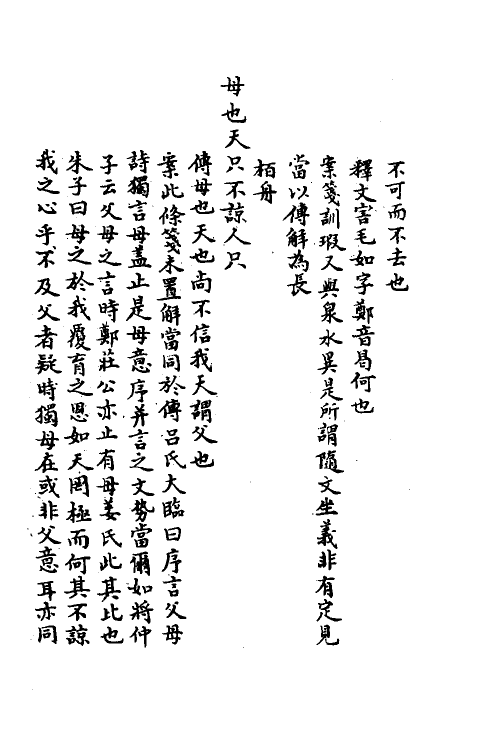 不可而不去也
釋文害毛如字鄭音曷何也
案箋訓瑕又與泉水異是所謂隨文生義非有定見
當以傳解為長
栢舟
母也天只不諒人只
傳母也天也尚不信我天謂父也
案此條箋未置解當同於傳呂氏大臨曰序言父母
詩獨言母蓋止是母意序并言之文勢當爾如將仲
子云父母之言時鄭莊公亦止有母姜氏此其比也
朱子曰母之於我覆育之恩如天罔極而何其不諒
我之心乎不及父者疑時獨母在或非父意耳亦同